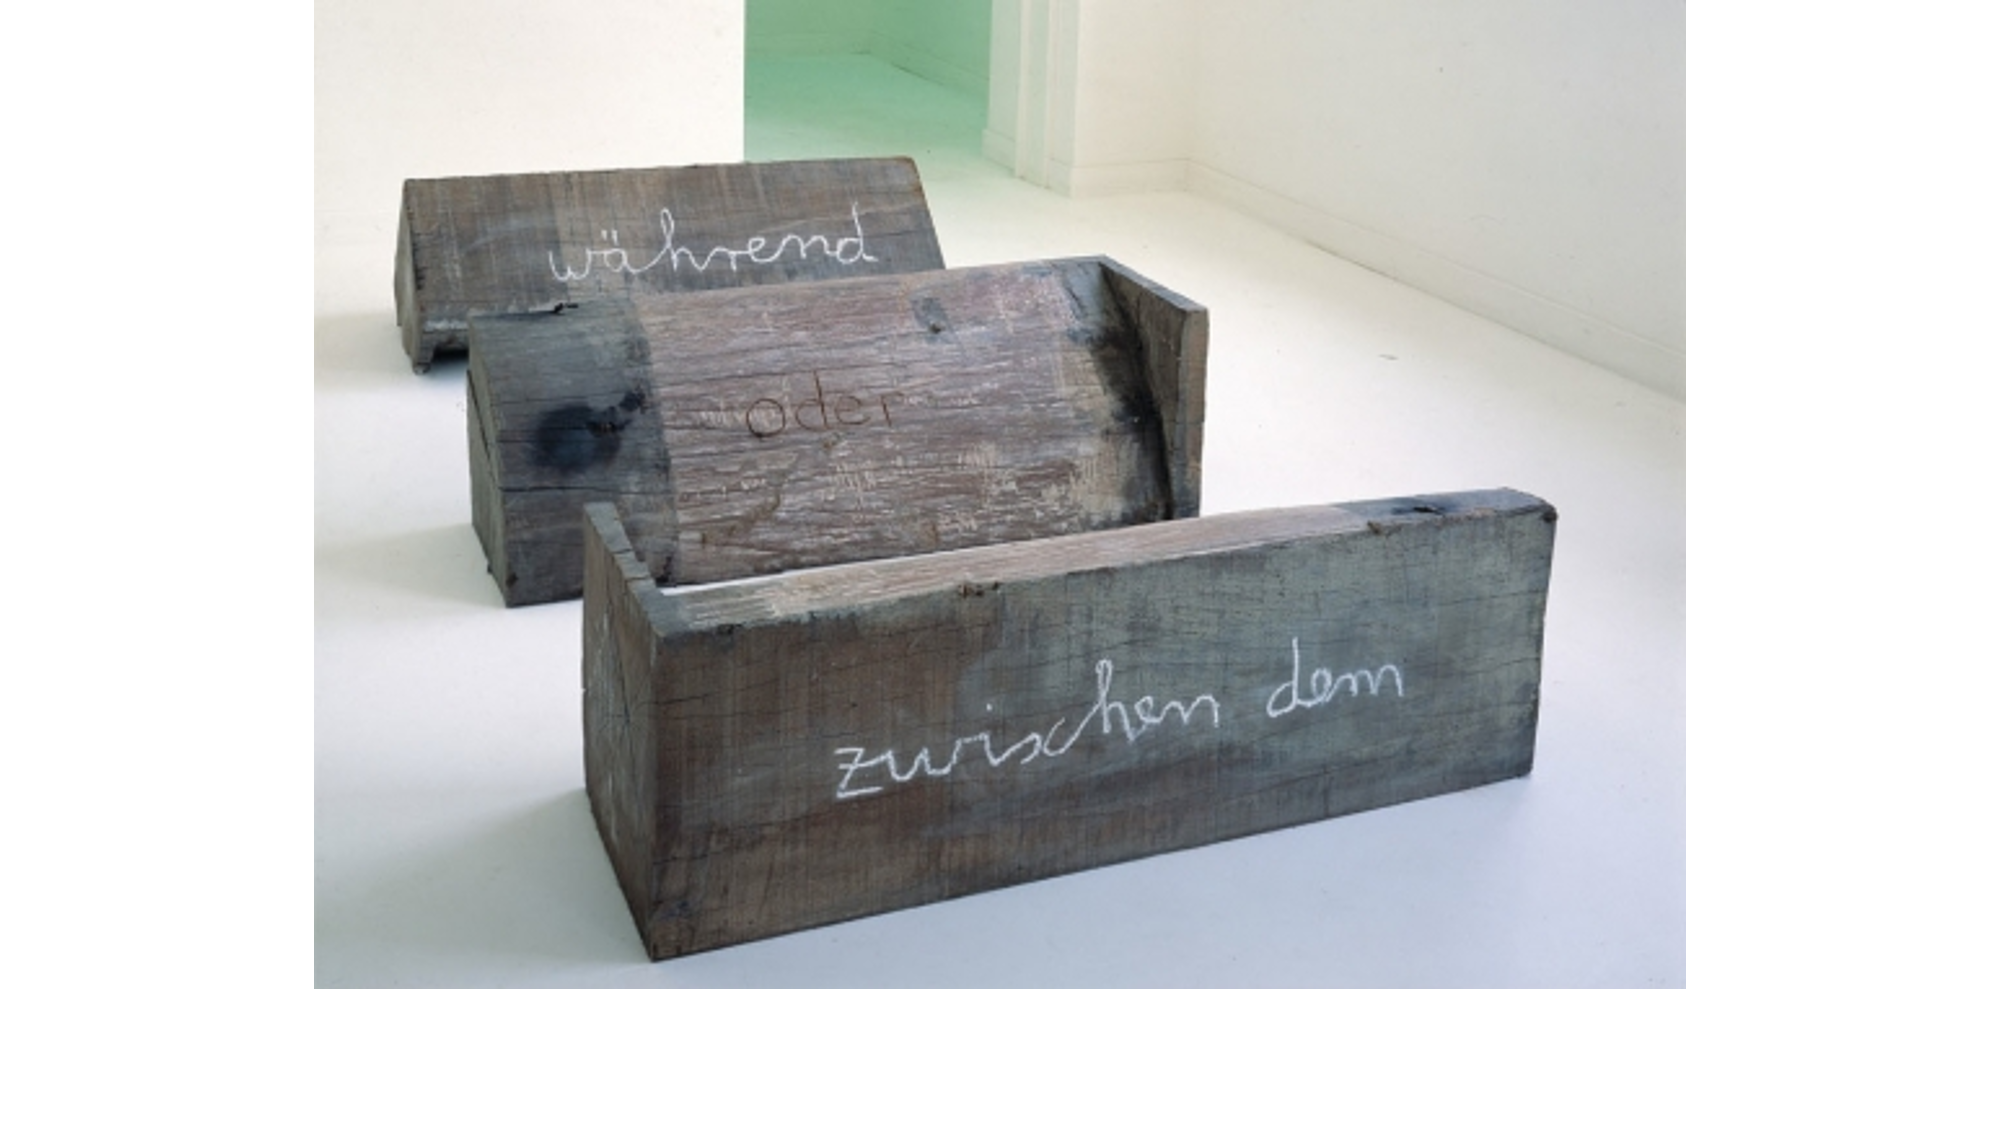 während
oder
zwischen dem